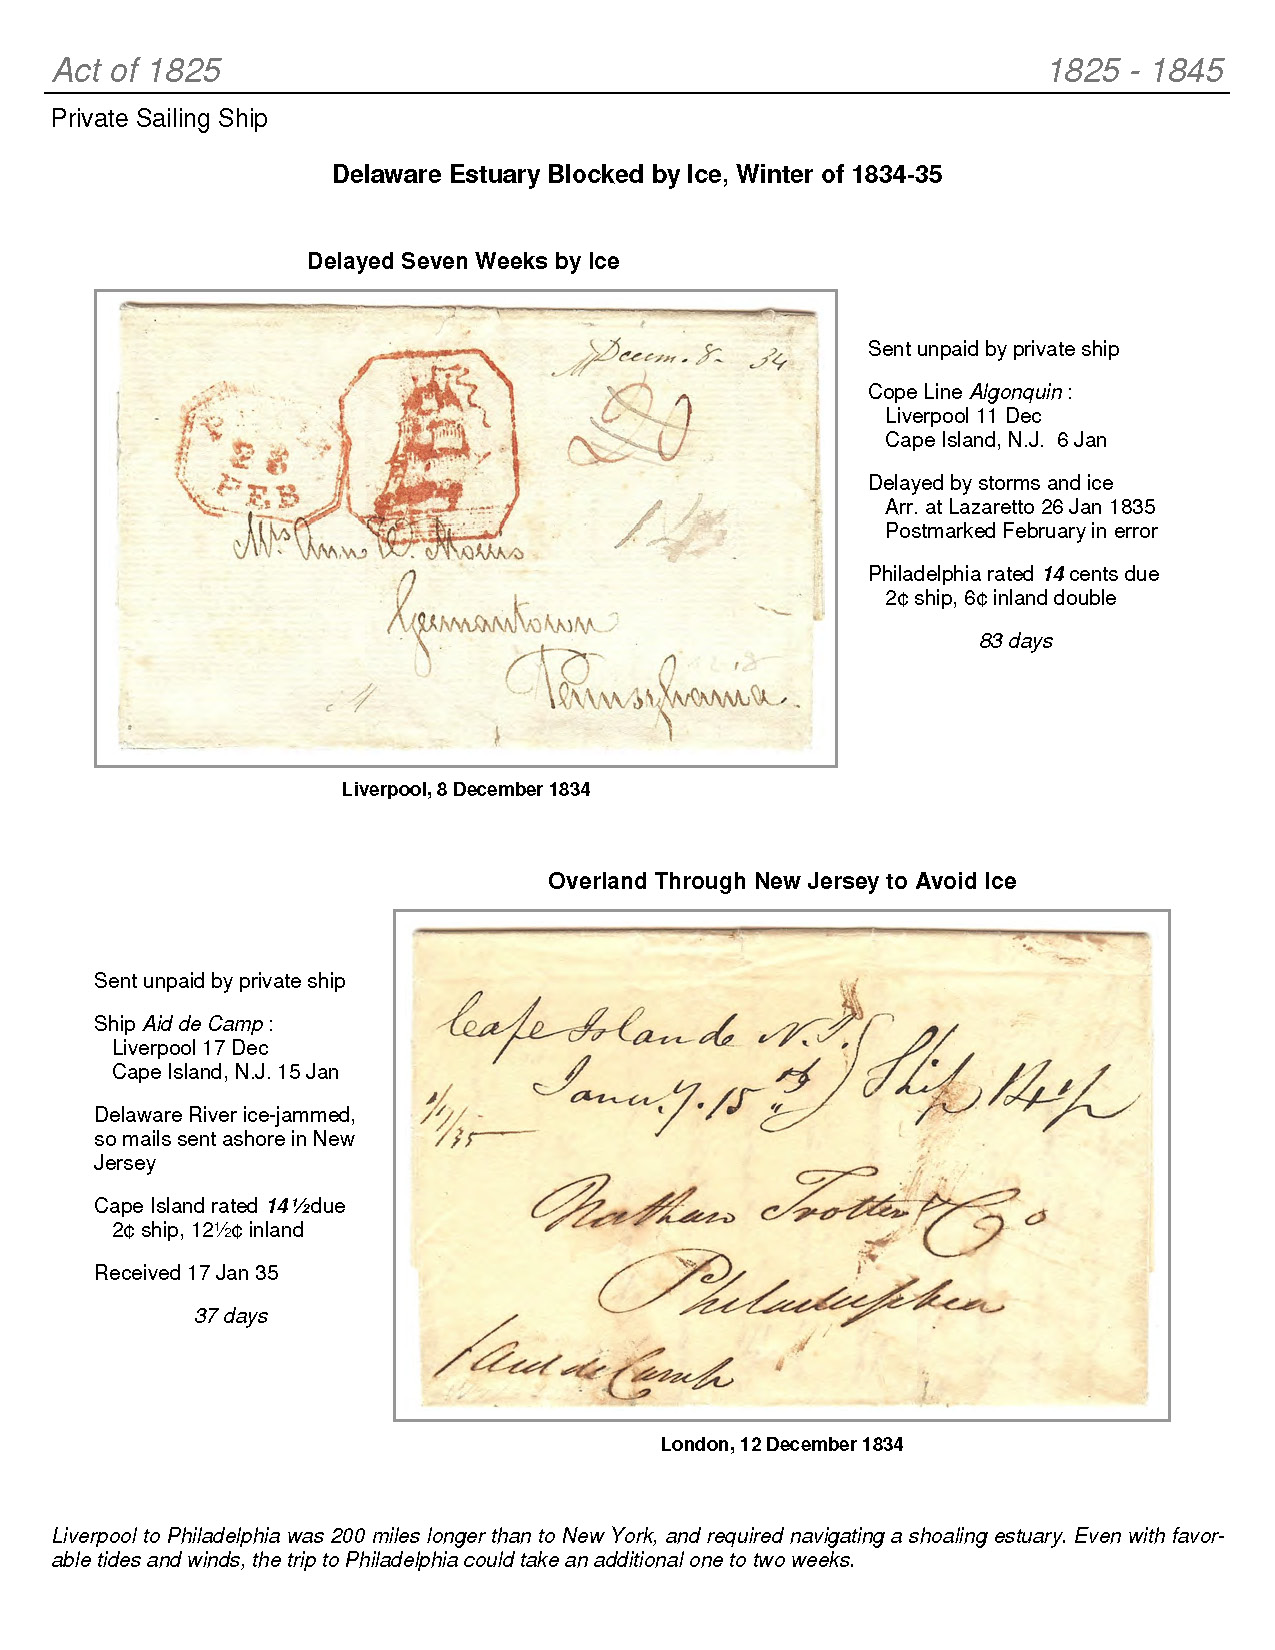 Act of 1825
1825 - 1845
Private Sailing Ship
Delaware Estuary Blocked by Ice, Winter of 1834-35
Delayed Seven Weeks by Ice
Decem. 8 - 34
20
28
FEB
14
Mrs Ann C. Morris
Germantown
Pennsylvania.
Sent unpaid by private ship
Cope Line Algonquin :
Liverpool 11 Dec
Cape Island, N.J. 6 Jan
Delayed by storms and ice
Arr. at Lazaretto 26 Jan 1835
Postmarked February in error
Philadelphia rated 14 cents due
2¢ ship, 6¢ inland double
83 days
Liverpool, 8 December 1834
Overland Through New Jersey to Avoid Ice
Sent unpaid by private ship
Ship Aid de Camp :
Liverpool 17 Dec
Cape Island, N.J. 15 Jan
Delaware River ice-jammed,
so mails sent ashore in New
Jersey
Cape Island rated 14½due
2¢ ship, 12½¢ inland
Received 17 Jan 35
37 days
Cape Islande N.J.
Janu.y. 15th
Ship
1/17/35
Nathan Trotter & Co
Philadelphia
London, 12 December 1834
Liverpool to Philadelphia was 200 miles longer than to New York, and required navigating a shoaling estuary. Even with favor-
able tides and winds, the trip to Philadelphia could take an additional one to two weeks.